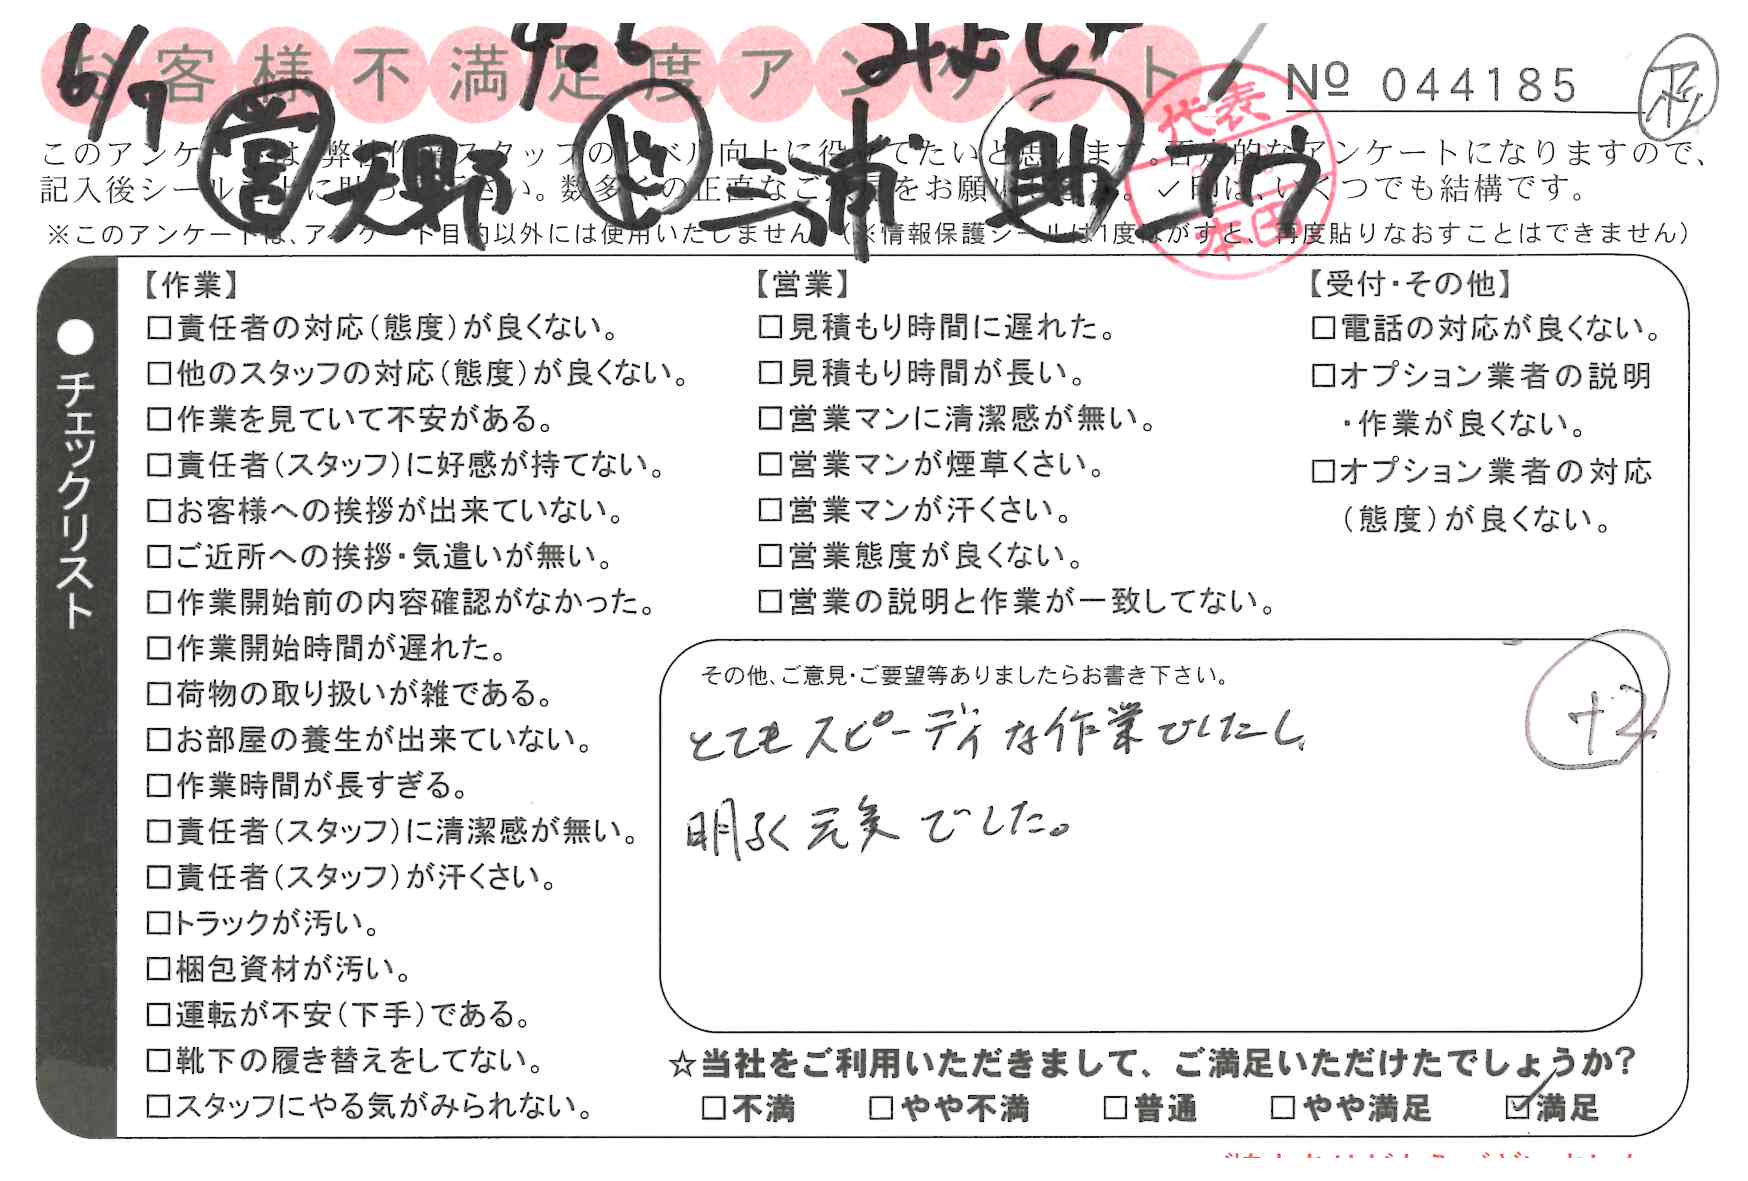 お客様不満足度アンケート
6/7 4-6
№ 044185
営 大野 止 三浦 助 コウ
代表
本田
このアンケートは、弊社作業スタッフのレベル向上に役立てたいと思います。否定的なアンケートになりますので、
記入後シールを上に貼って下さい。数多くの正直なご意見をお願いします。✓印は、いくつでも結構です。
※このアンケートは、アンケート目的以外には使用いたしません。(※情報保護シールは1度はがすと、再度貼りなおすことはできません)
●チェックリスト
【作業】
□責任者の対応(態度)が良くない。
□他のスタッフの対応(態度)が良くない。
□作業を見ていて不安がある。
□責任者(スタッフ)に好感が持てない。
□お客様への挨拶が出来ていない。
□ご近所への挨拶・気遣いが無い。
□作業開始前の内容確認がなかった。
□作業開始時間が遅れた。
□荷物の取り扱いが雑である。
□お部屋の養生が出来ていない。
□作業時間が長すぎる。
□責任者(スタッフ)に清潔感が無い。
□責任者(スタッフ)が汗くさい。
□トラックが汚い。
□梱包資材が汚い。
□運転が不安(下手)である。
□靴下の履き替えをしてない。
□スタッフにやる気がみられない。
【営業】
□見積もり時間に遅れた。
□見積もり時間が長い。
□営業マンに清潔感が無い。
□営業マンが煙草くさい。
□営業マンが汗くさい。
□営業態度が良くない。
□営業の説明と作業が一致してない。
【受付・その他】
□電話の対応が良くない。
□オプション業者の説明
・作業が良くない。
□オプション業者の対応
(態度)が良くない。
その他、ご意見・ご要望等ありましたらお書き下さい。
+2
とてもスピーディな作業でしたし、
明るく元気でした。
☆当社をご利用いただきまして、ご満足いただけたでしょうか?
□不満 □やや不満 □普通 □やや満足 ☑満足